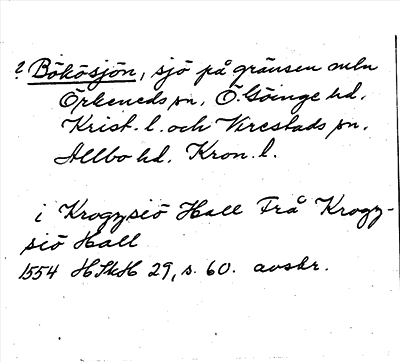 ? Bökösjön, sjö på gränsen mln
Örkeneds sn, Ö. Göinge hd.
Krist. l. och Virestads sn,
Allbo hd. Kron. l.
i Krogzsiö Hall Frå Krogz-
siö Hall
1554 HSkH 29, s. 60. avskr.